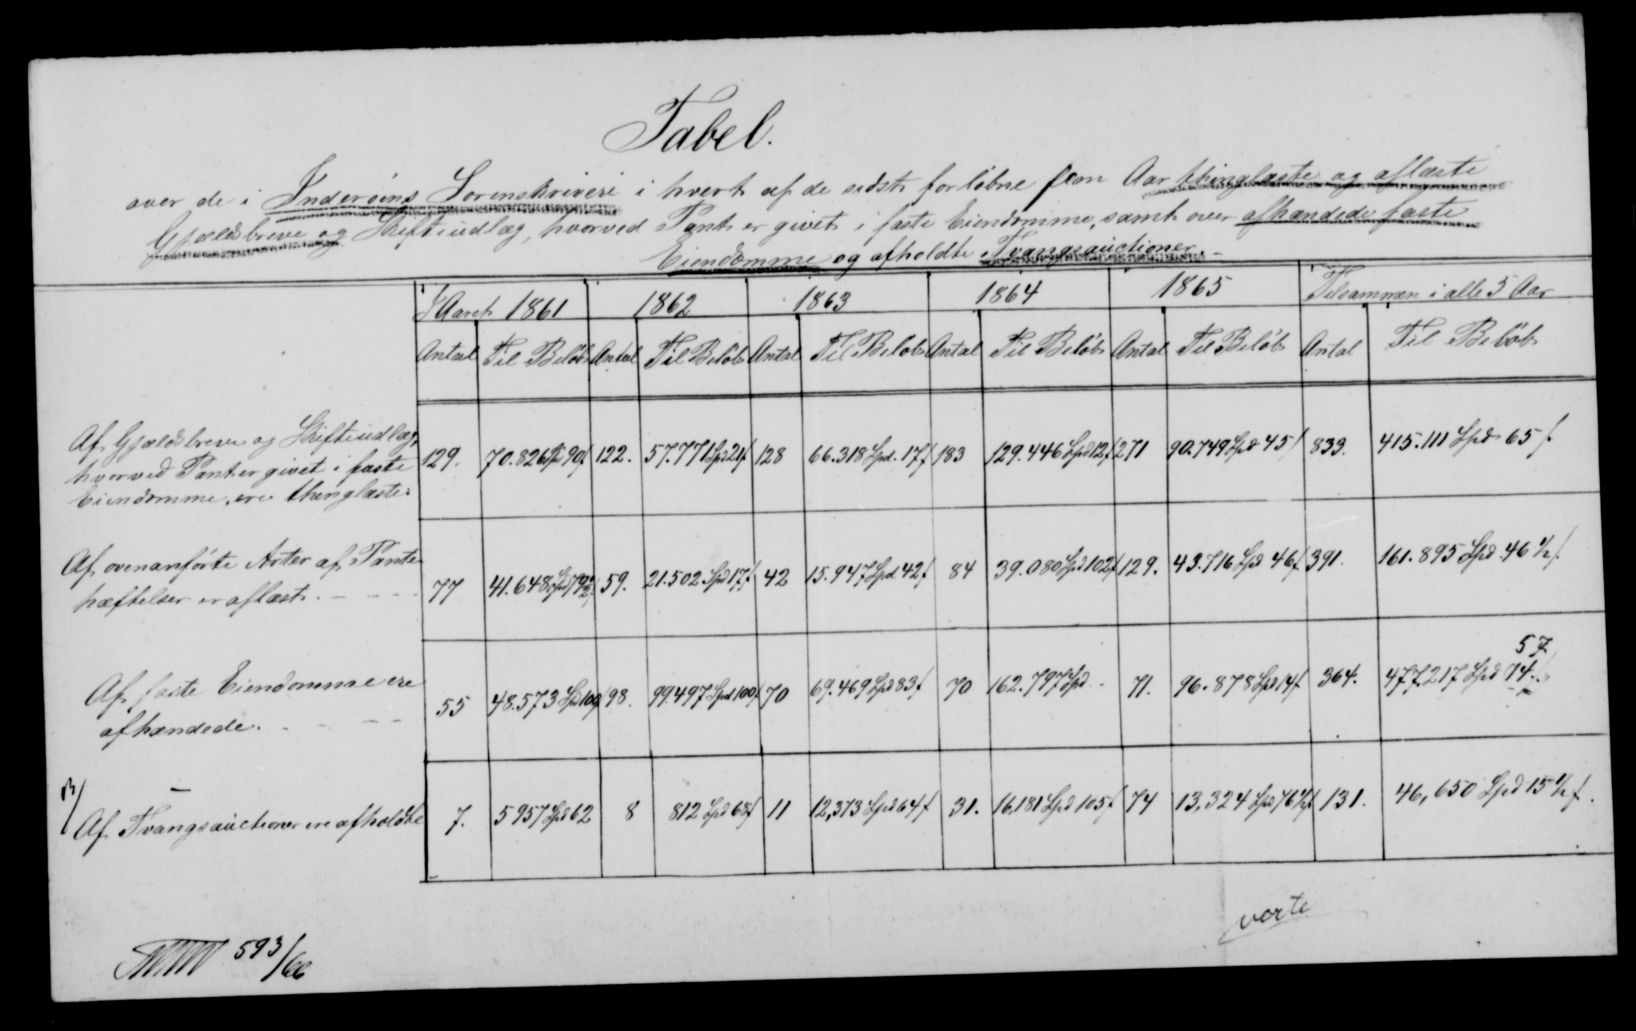 Tabel.
over de i Inderøens Sorenskriveri i hvert af de sidst forløbne fem Aar thinglæste og aflæste
Gjældsbreve og Skifteudlæg, hvorved Pant er givet i faste Eiendomme, samt over afhændede faste
Eiendomme og afholdte Tvangsauctioner.
I Aaret 1861 1862 1863 1864 1865 Tilsammen i alle 5 Aar
Antal Til Beløb Antal Til Beløb Antal Til Beløb Antal Til Beløb Antal Til Beløb Antal Til Beløb
Af Gjældsbreve og Skifteudlæg,
hvorved Pant er givet i faste
Eiendomme, ere thinglæste
129. 70.826 Spd 90 f 122. 57.771 Spd 21 f 128 66.318 Spd. 17 f 183 129.446 Spd 12 f 271 90.749 Spd 45 f 833. 415.111 Spd 65 f
Af ovenanførte Arter af Pante
hæftelser er aflæst. - - - -
77 41.648 Spd 79½ f 59. 21.502 Spd 17 f 42 15.947 Spd 42 f 84 39.080 Spd 102 f 129. 43.716 Spd 46 f 391. 161.895 Spd 46½ f
Af faste Eiendomme ere
afhændede. - - - -
57
55 48.573 Spd 100 f 98. 99.497 Spd 100 f 70 69.469 Spd 83 f 70 162.797 Spd - 71. 96.878 Spd 14 f 364. 477,217 Spd 74 f
Af Tvangsauctioner ere afholdt 7. 5957 Spd 62 8 812 Spd 68 f 11 12,373 Spd 64 f 31. 16,181 Spd 105 f 74 13,324 Spd 76½ f 131. 46,650 Spd 15½ f.
verte
593/66